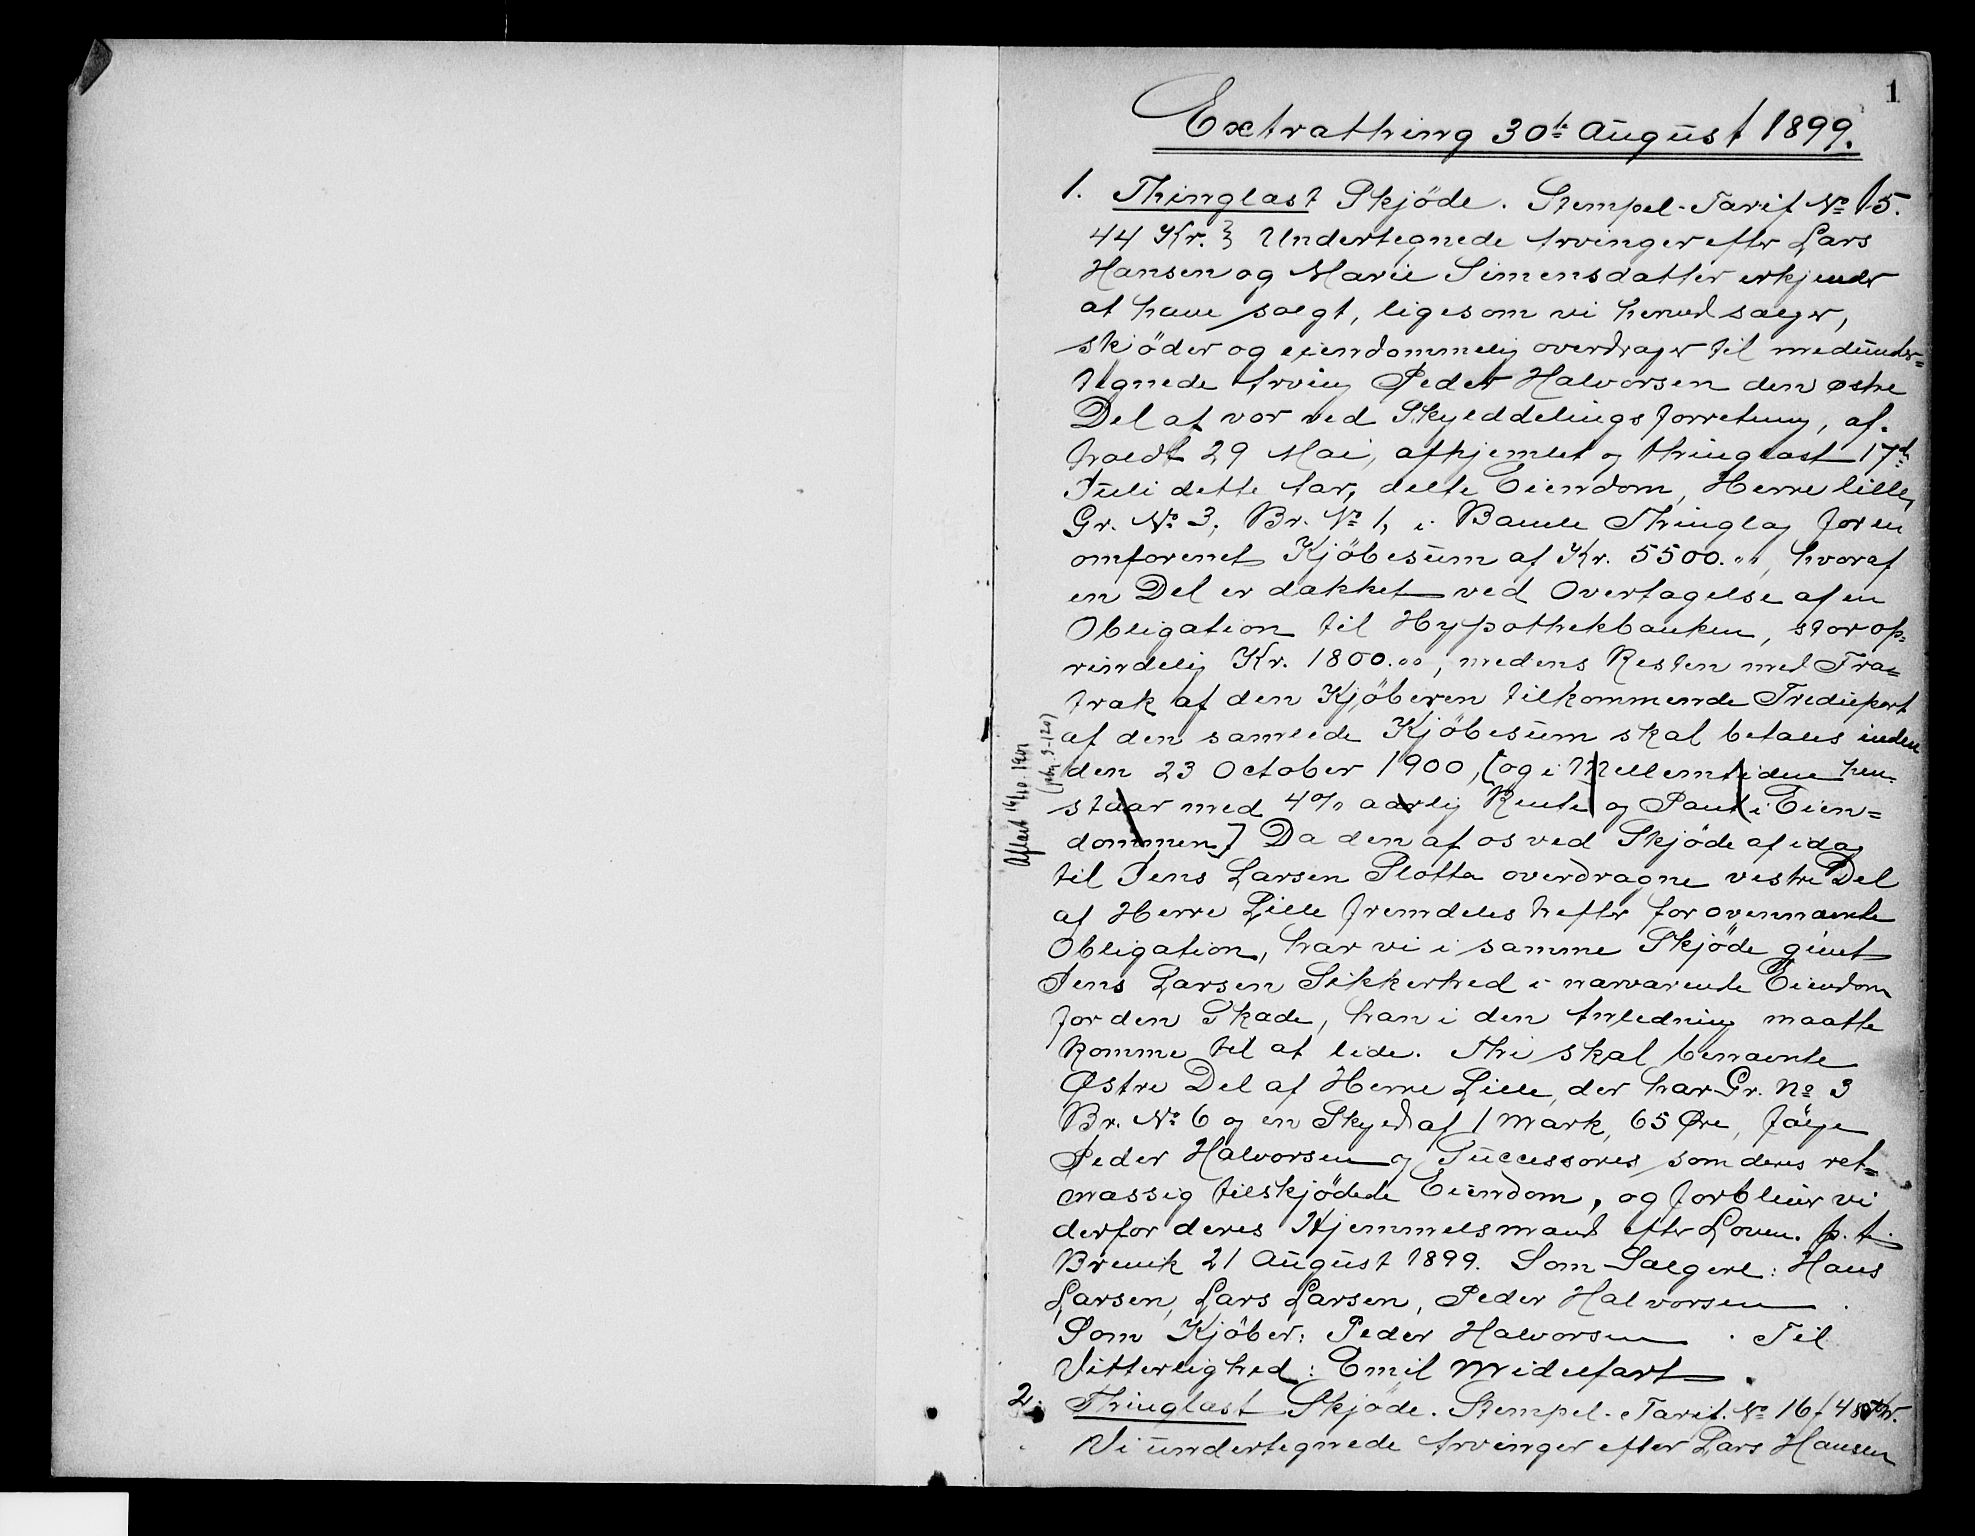 1
Extrathing 30te August 1899.
1. Thinglæst Skjøde. Stempel-Tarif No 15.
44 Kr. } Undertegnede Arvinger efter Lars
Hansen og Marie Simensdatter erkjender
at have solgt, ligesom vi herved sælger,
skjøder og eiendommelig overdrager til medunder=
tegnede Arving Peder Halvorsen den østre
Del af vor ved Skylddelingsforretning, af-
holdt 29 Mai, afhjemlet og thinglæst 17de
Juli dette Aar, delte Eiendom, Herre lille,
Gr. No 3, Br. No 1, i Bamle Thinglag for en
omforenet Kjöbesum af Kr. 5500.00, hvoraf
en Del er dækket ved Overtagelse af en
Obligation til Hypothekbanken, stor op=
rindelig Kr. 1800.00, medens Resten med Fra=
træk af den Kjöberen tilkommende Trediepart
af den samlede Kjöbesum skal betales inden
den 23 October 1900, [og i Mellemtiden hen-
staar med 4% aarlig Rente og Pant i Eien=
dommen] Da den af os ved Skjøde af idag
til Jens Larsen Plotta overdragne vestre Del
af Herre Lille fremdeles hefter for ovennævnte
Obligation, har vi i samme Skjøde givet
Jens Larsen Sikkerhed i nærværende Eiendom
for den Skade, han i den Anledning maatte
komme til at lide. Thi skal benævnte
Østre Del af Herre Lille, der har Gr. No 3
Br. No 6 og en Skyld af 1 Mark, 65 Øre, følge
Peder Halvorsen og Successores som deres ret=
mæssig tilskjødede Eiendom, og forbliver vi
derfor deres Hjemmelsmænd efter Loven. p.t.
Brevik 21 August 1899. Som Sælgere: Hans
Larsen, Lars Larsen, Peder Halvorsen.
Som Kjöber: Peder Halvorsen. Til
Vitterlighed: Emil Midelfart.
2. Thinglæst Skjøde. Stempel-Tarif. No 16 / 48 Kr.
Vi undertegnede Arvinger efter Lars Hansen
Aflæst 16/10 1901